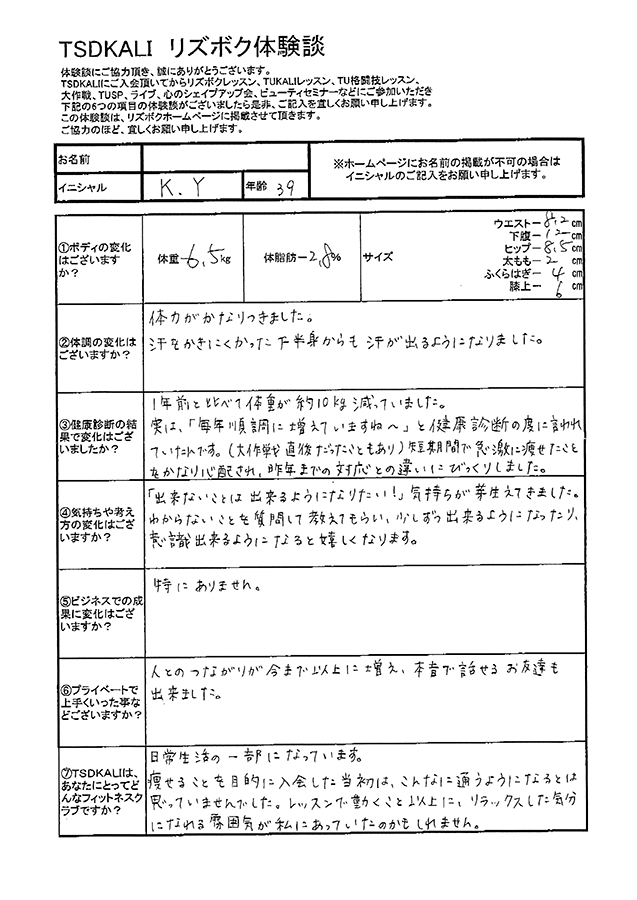 TSDKALI リズボク体験談
体験談にご協力頂き、誠にありがとうございます。
TSDKALIにご入会頂いてからリズボクレッスン、TUKALIレッスン、TU格闘技レッスン、
大作戦、TUSP、ライブ、心のシェイプアップ会、ビューティセミナーなどにご参加いただき
下記の6つの項目の体験談がございましたら是非、ご記入を宜しくお願い申し上げます。
この体験談は、リズボクホームページに掲載させて頂きます。
ご協力のほど、宜しくお願い申し上げます。
お名前
※ホームページにお名前の掲載が不可の場合は
イニシャルのご記入をお願い申し上げます。
イニシャル K.Y 年齢 39
①ボディの変化
はございます
か?
体重-6.5kg 体脂肪-2.8% サイズ
ウエスト-8.2cm
下腹-12cm
ヒップ-8.5cm
太もも-2cm
ふくらはぎ-4cm
膝上-6cm
②体調の変化は
ございますか?
体力がかなりつきました。
汗をかきにくかった下半身からも汗が出るようになりました。
③健康診断の結
果で変化はござ
いましたか?
1年前と比べて体重が約10kg減っていました。
実は、「毎年順調に増えていますね〜」と健康診断の度に言われ
ていたんです。(大作戦直後だったこともあり)短期間で急激に痩せたこと
をかなり心配され、昨年までの対応との違いにびっくりしました。
④気持ちや考え
方の変化はござ
いますか?
「出来ないことは出来るようになりたい!」気持ちが芽生えてきました。
わからないことを質問して教えてもらい、少しずつ出来るようになったり、
意識出来るようになると嬉しくなります。
⑤ビジネスでの成
果に変化はござ
いますか?
特にありません。
⑥プライベートで
上手くいった事な
どございますか?
人とのつながりが今まで以上に増え、本音で話せるお友達も
出来ました。
⑦TSDKALIは、
あなたにとってど
んなフィットネスク
ラブですか?
日常生活の一部になっています。
痩せることを目的に入会した当初は、こんなに通うようになるとは
思っていませんでした。レッスンで動くこと以上に、リラックスした気分
になれる雰囲気が私にあっていたのかもしれません。